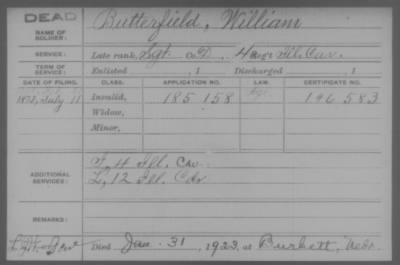 DEAD
NAME OF SOLDIER: Butterfield, William
SERVICE: Late rank, Sgt. Co D, 4 Regt Ill. Cav.
TERM OF SERVICE: Enlisted , 1 Discharged , 1
DATE OF FILING. CLASS. APPLICATION NO. LAW. CERTIFICATE NO.
1873, July 11 Invalid, 185 158 196 583
Widow,
Minor,
ADDITIONAL SERVICES: F, 4 Ill. Cav.
L, 12 Ill. Cav
REMARKS:
Died Jan. 31, 1923, at Burkett, Nebr.